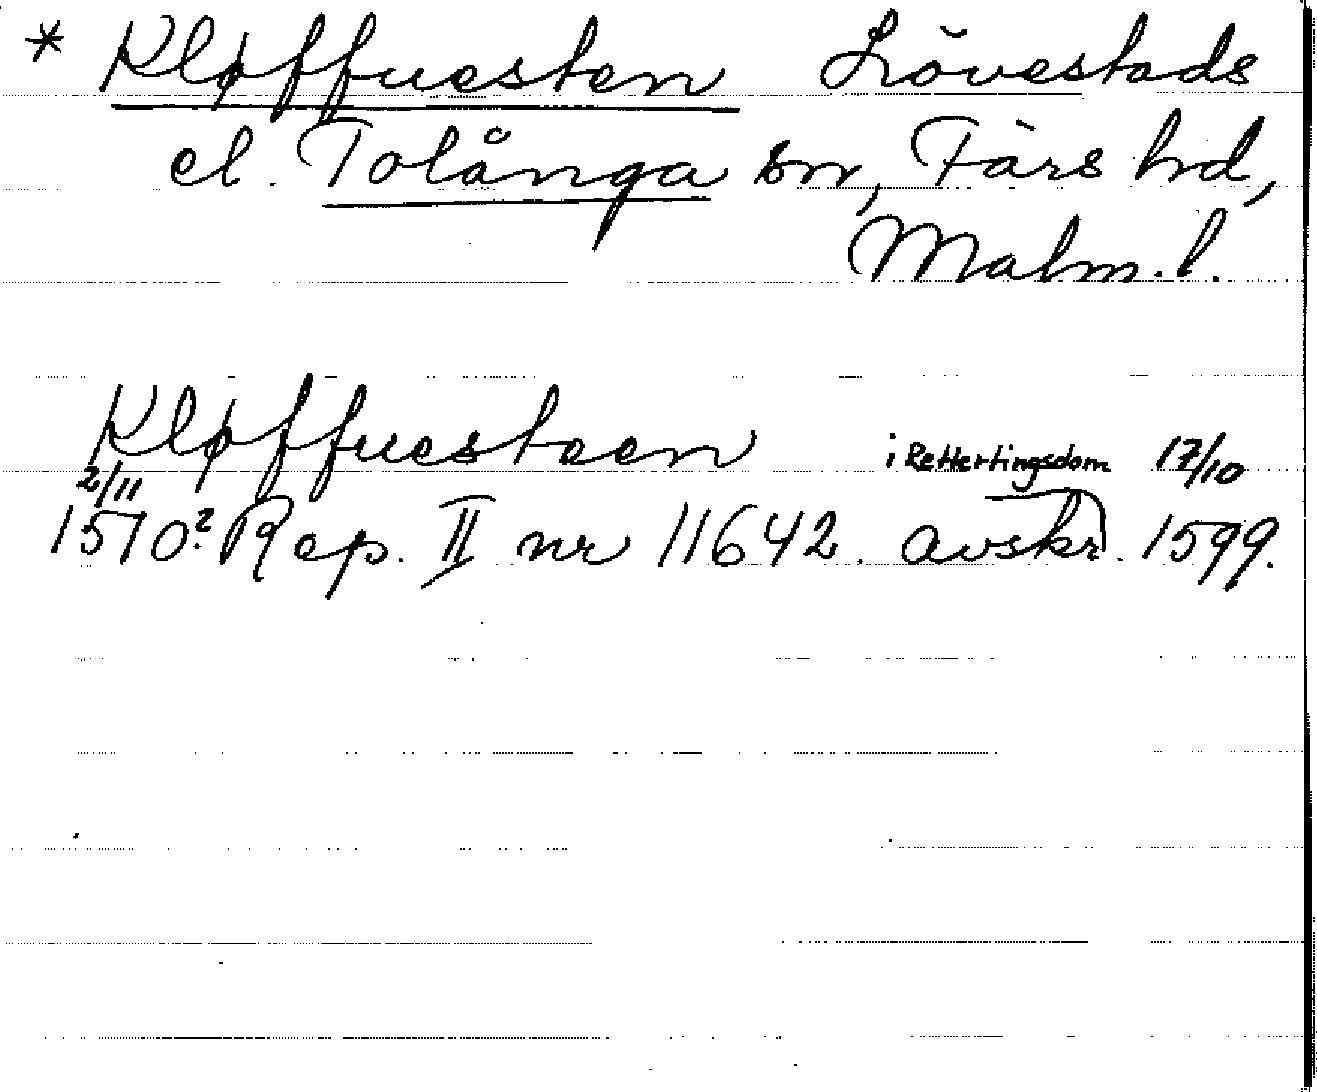 * Kløffuesten Lövestads
el. Tolånga sn, Färs hd,
Malm.l.
Kløffuesteen i Rettertingsdom 17/10
2/11
1510? Rep. II nr 11642. avskr. 1599.